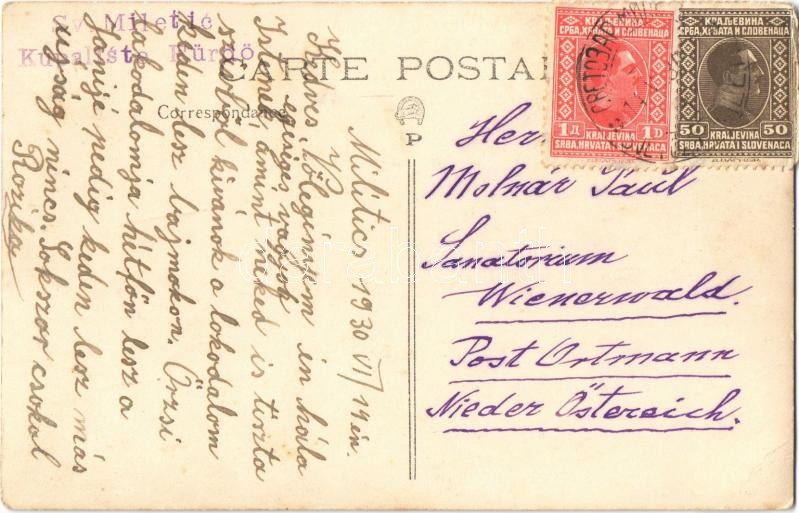 Sv. Miletić
Kupalište Fürdő
CARTE POSTALE
Correspondance
P
КРАЉЕВИНА
СРБА, ХРВАТА И СЛОВЕНАЦА
1Д 1D
KRALJEVINA
SRBA, HRVATA I SLOVENACA
КРАЉЕВИНА
СРБА, ХРВАТА И СЛОВЕНАЦА
50 50
KRALJEVINA
SRBA, HRVATA I SLOVENACA
Milítics 1930 VI/14 én.
Kedves Völegényem én hála
Istenek egéséges vagyok
amint neked is tiszta
szívből kivánok a lokodalom
keden lesz bajmokon. Örzsi
lokodalomja hétfőn lesz a
pedig keden lesz más
ujság nincs. Sokszor csokol
Rozika
Herr
Molnár Paul
Sanatorium
Wienerwald.
Post Ortmann
Nieder Östereich.